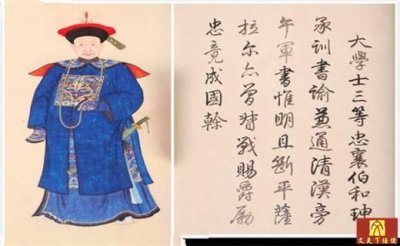 大學士三等忠襄伯和珅
承訓書諭兼通清漢旁
午軍書惟明且斷平薩
拉尔亦曾督戰賜爵勵
忠竟成國幹